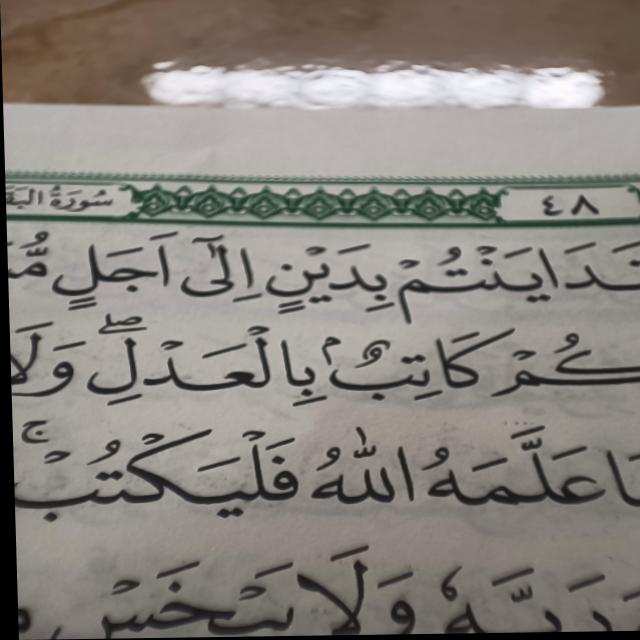 ٤٨ سُورَةُ
تَدَايَنْتُمْ بِدَيْنٍ اِلٰٓى اَجَلٍ
كَاتِبٌ بِالْعَدْلِۖ وَلَا
عَلَّمَهُ اللّٰهُ فَلْيَكْتُبْۚ
رَبَّهُ وَلَا يَبْخَسْ